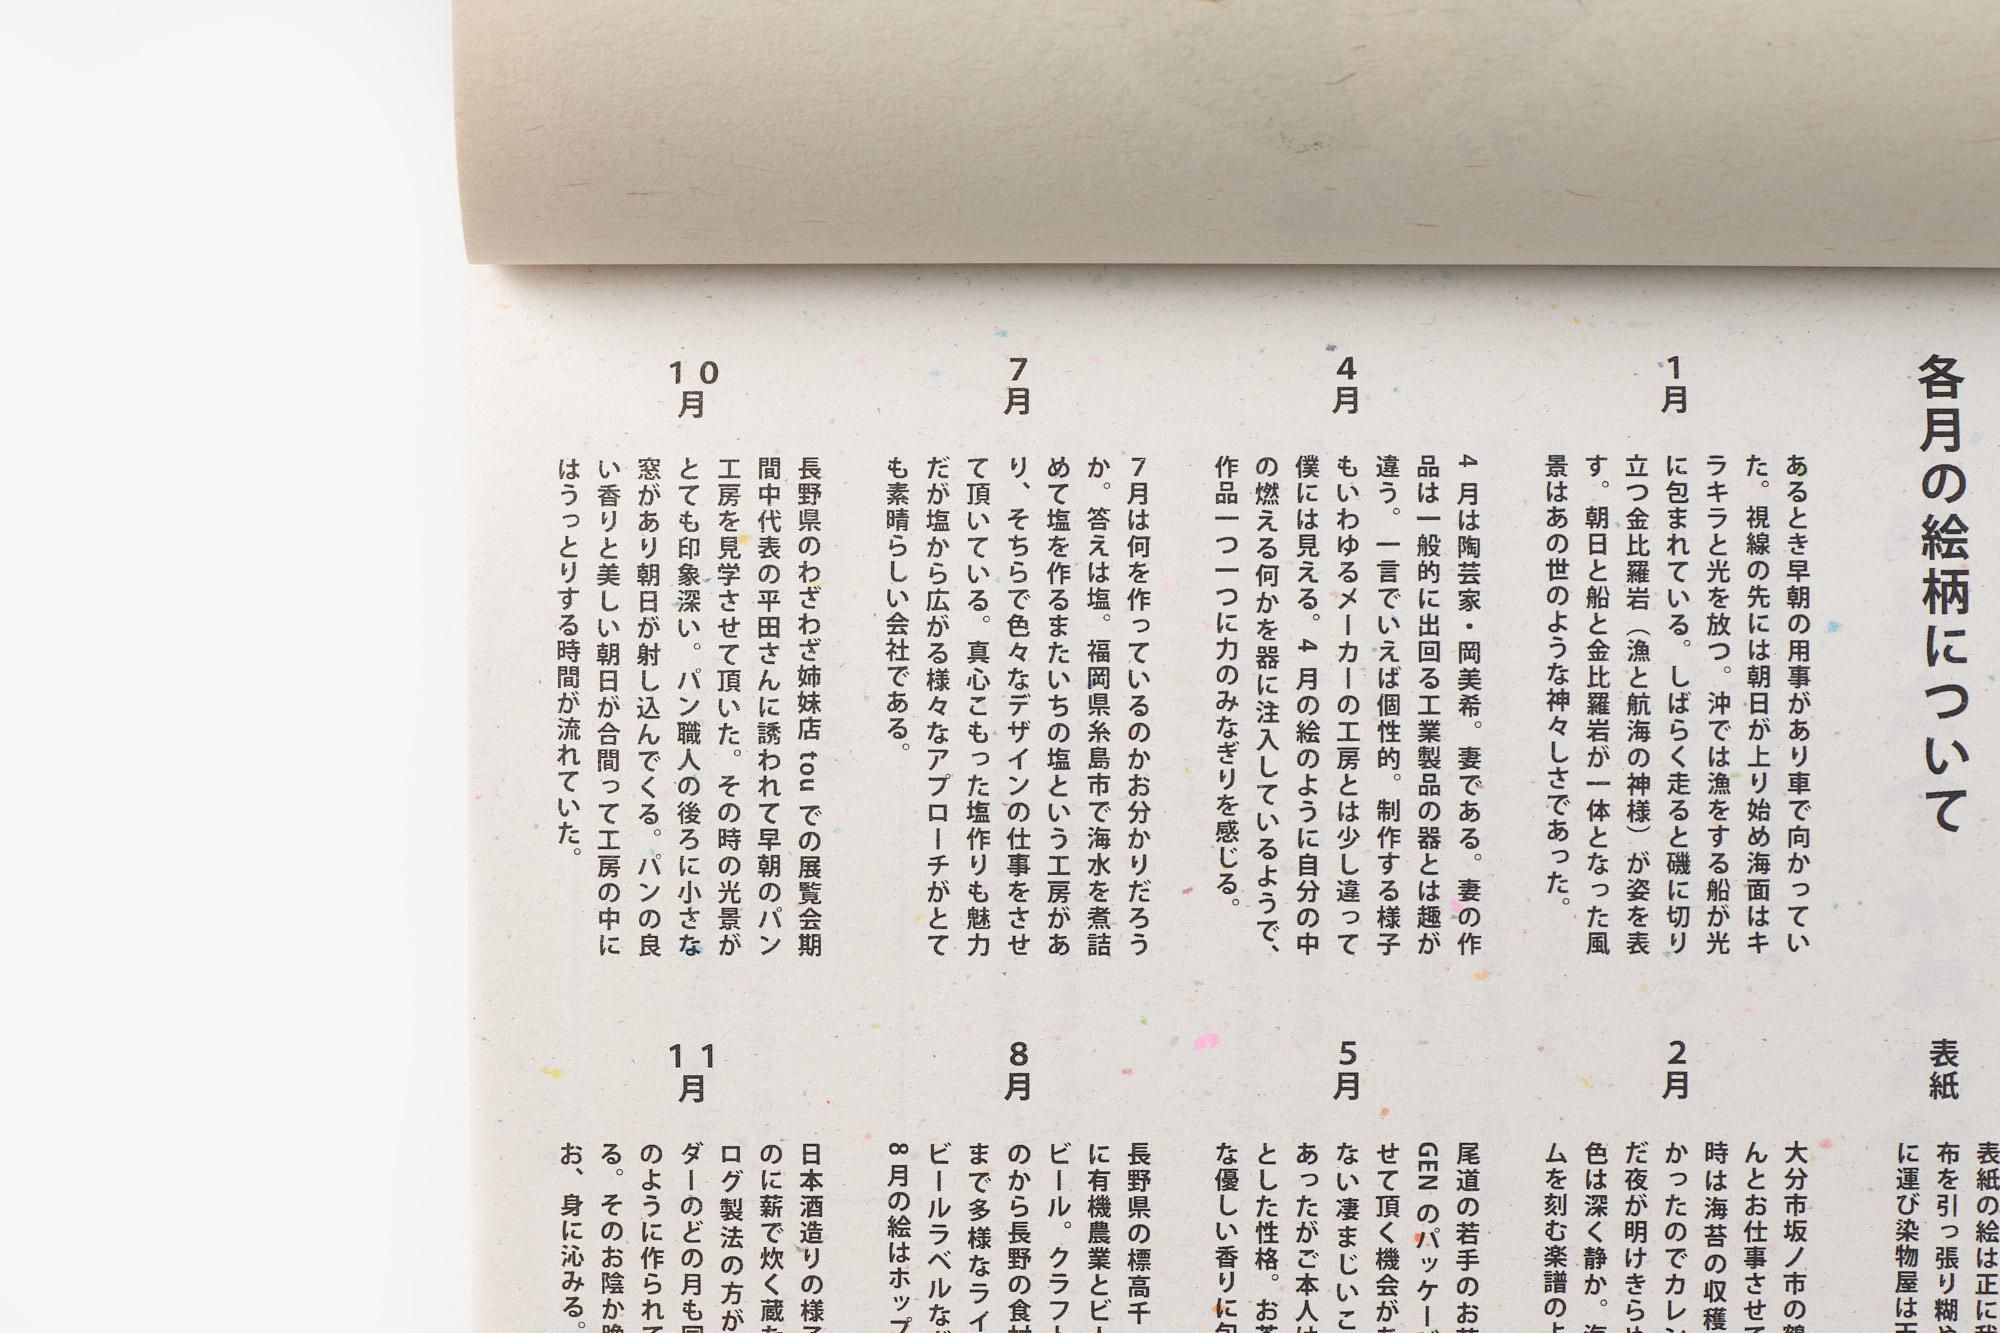 各月の絵柄について
1月
あるとき早朝の用事があり車で向かってい
た。視線の先には朝日が上り始め海面はキ
ラキラと光を放つ。沖では漁をする船が光
に包まれている。しばらく走ると磯に切り
立つ金比羅岩（漁と航海の神様）が姿を表
す。朝日と船と金比羅岩が一体となった風
景はあの世のような神々しさであった。
4月
4月は陶芸家・岡美希。妻である。妻の作
品は一般的に出回る工業製品の器とは趣が
違う。一言でいえば個性的。制作する様子
もいわゆるメーカーの工房とは少し違って
僕には見える。4月の絵のように自分の中
の燃える何かを器に注入しているようで、
作品一つ一つに力のみなぎりを感じる。
7月
7月は何を作っているのかお分かりだろう
か。答えは塩。福岡県糸島市で海水を煮詰
めて塩を作るまたいちの塩という工房があ
り、そちらで色々なデザインの仕事をさせ
て頂いている。真心こもった塩作りも魅力
だが塩から広がる様々なアプローチがとて
も素晴らしい会社である。
10月
長野県のわざわざ姉妹店 tou での展覧会期
間中代表の平田さんに誘われて早朝のパン
工房を見学させて頂いた。その時の光景が
とても印象深い。パン職人の後ろに小さな
窓があり朝日が射し込んでくる。パンの良
い香りと美しい朝日が合間って工房の中に
はうっとりする時間が流れていた。
表紙
表紙の絵は正に
布を引っ張り糊
に運び染物屋は
2月
大分市坂ノ市の
んとお仕事させて
時は海苔の収穫
かったのでカレン
だ夜が明けきら
色は深く静か。
ムを刻む楽譜の
5月
尾道の若手のお
GEN のパッケー
せて頂く機会が
ない凄まじいこ
あったがご本人
とした性格。お
な優しい香りに
8月
長野県の標高千
に有機農業とビー
ビール。クラフト
のから長野の食
まで多様なライ
ビールラベルな
8月の絵はホップ
11月
日本酒造りの様
のに薪で炊く蔵
ログ製法の方が
ダーのどの月も
のように作られて
る。そのお陰か
お、身に沁みる。